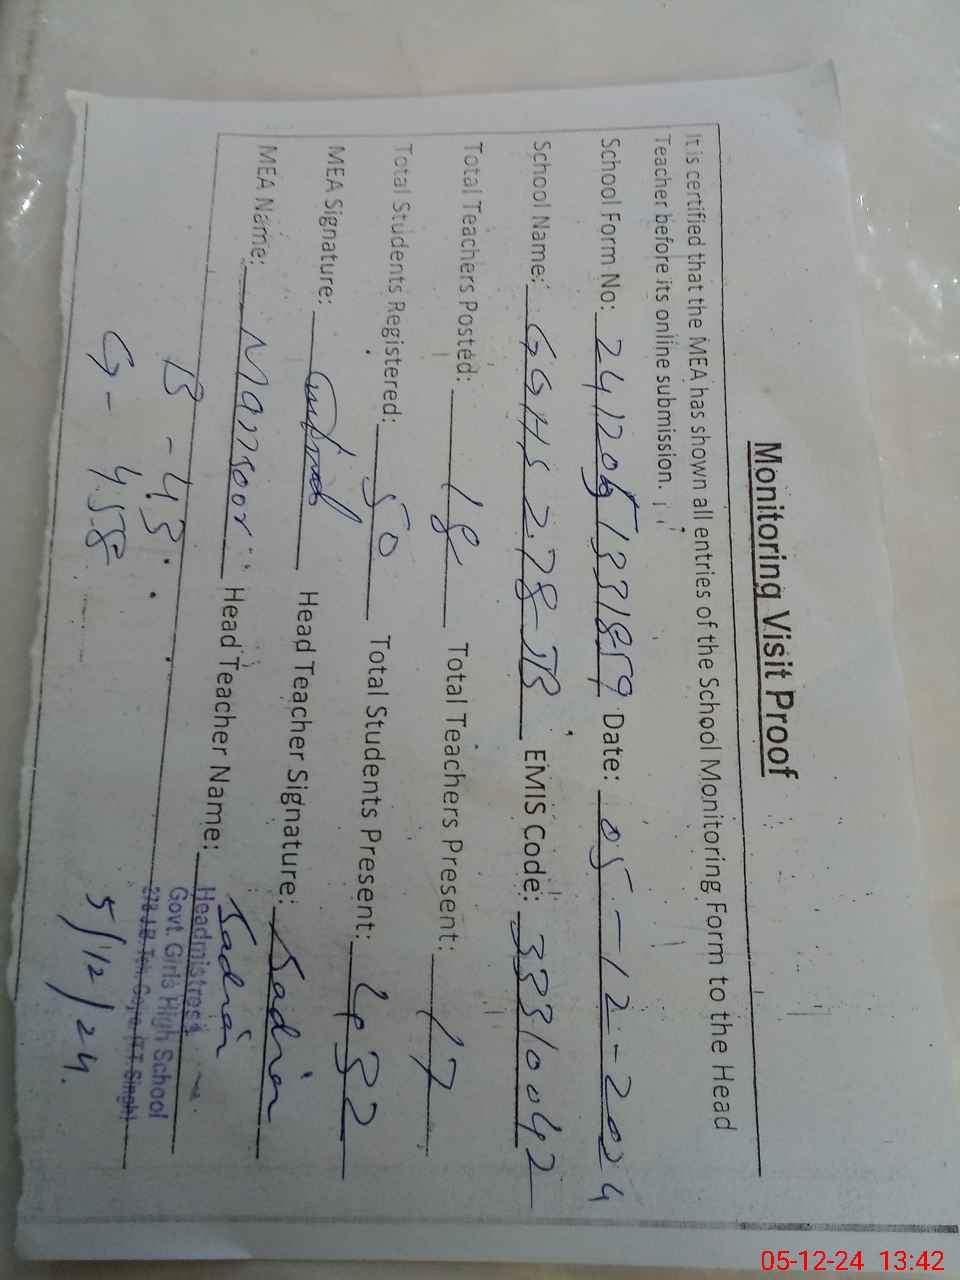 Monitoring Visit Proof
It is certified that the MEA has shown all entries of the School Monitoring Form to the Head
Teacher before its online submission.
School Form No: 2412051331859 Date: 05-12-2024
School Name: GGHS 278-JB EMIS Code: 33310042
Total Teachers Posted: 18 Total Teachers Present: 17
Total Students Registered: 50 Total Students Present: 432
MEA Signature: Head Teacher Signature: Sadia
MEA Name: Manzoor Head Teacher Name: Sadia
Headmistress
Govt. Girls High School
278 J.B. Teh. Gojra (T.T. Singh)
B - 43
G - 458
5/12/24.
05-12-24 13:42